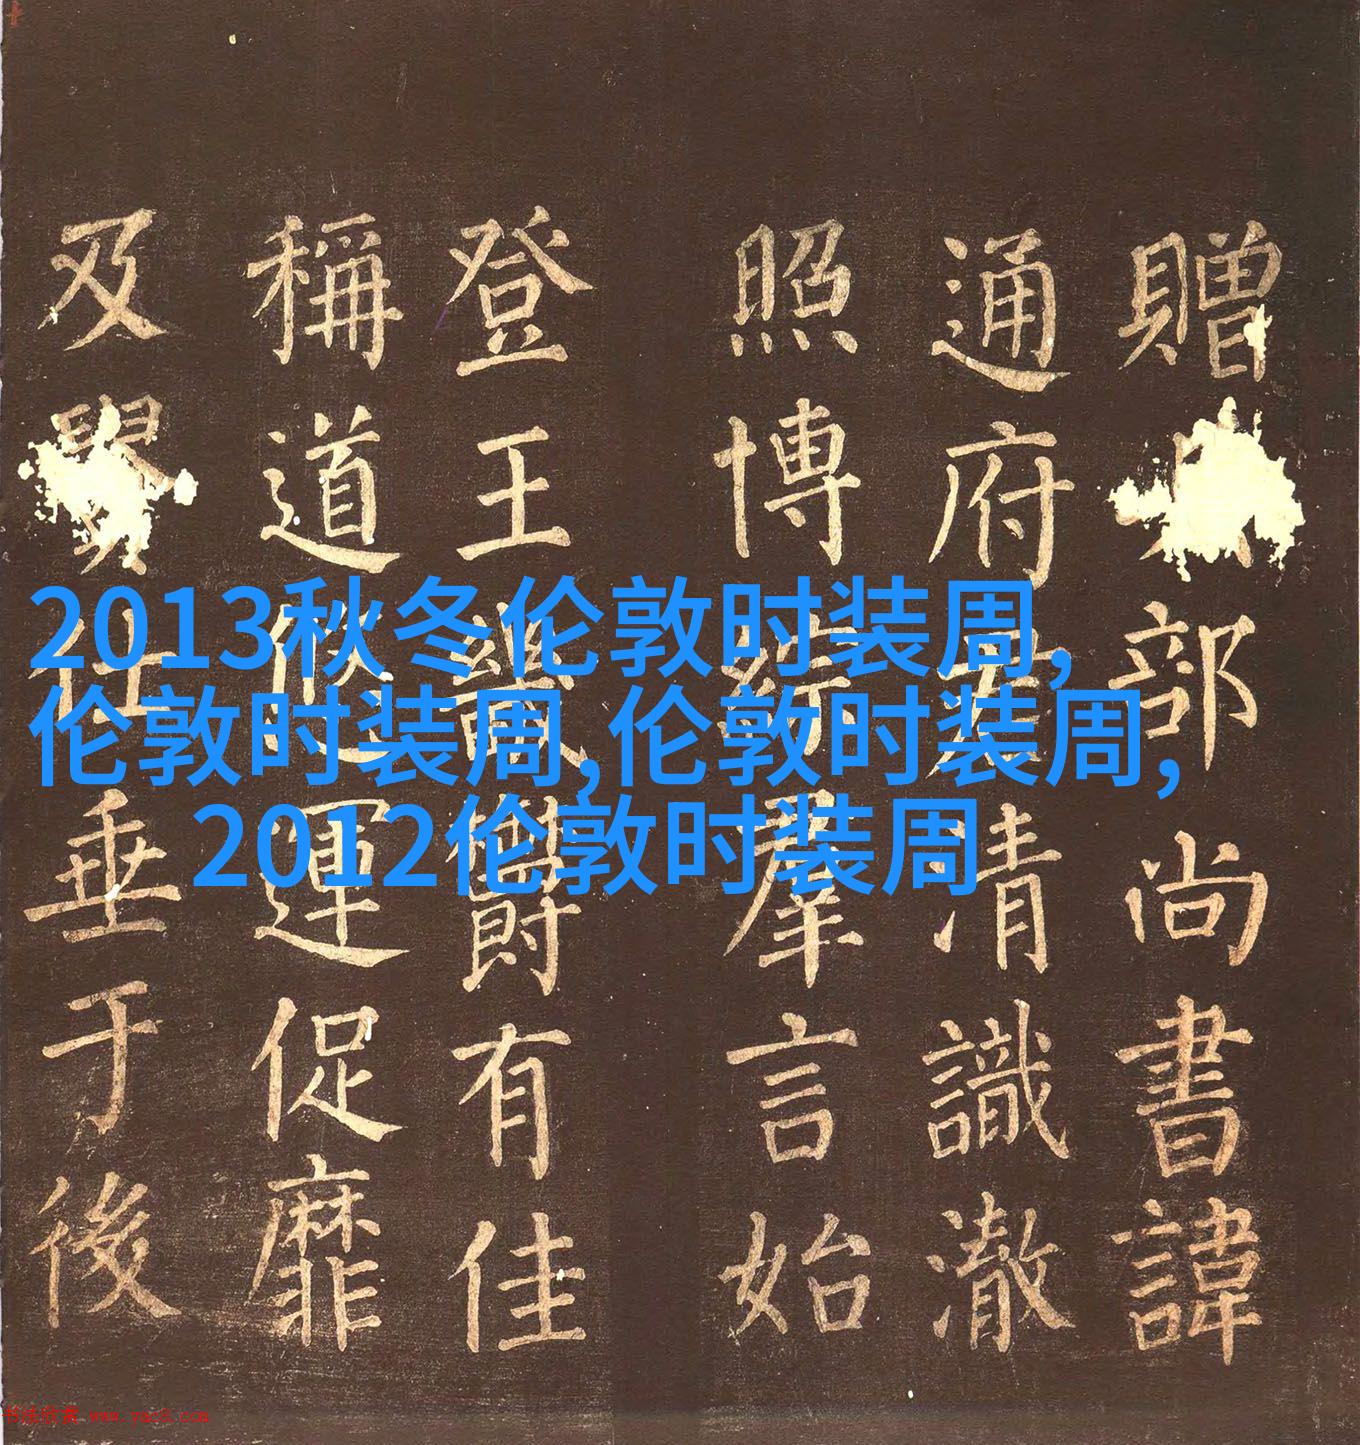 贈部尚書諱
通府君清識澈
照博綜羣言始
登王畿爵有佳
稱道俊運促靡
及垂于後
2013秋冬伦敦时装周,
伦敦时装周,伦敦时装周,
2012伦敦时装周
书法欣赏 www.yac8.com